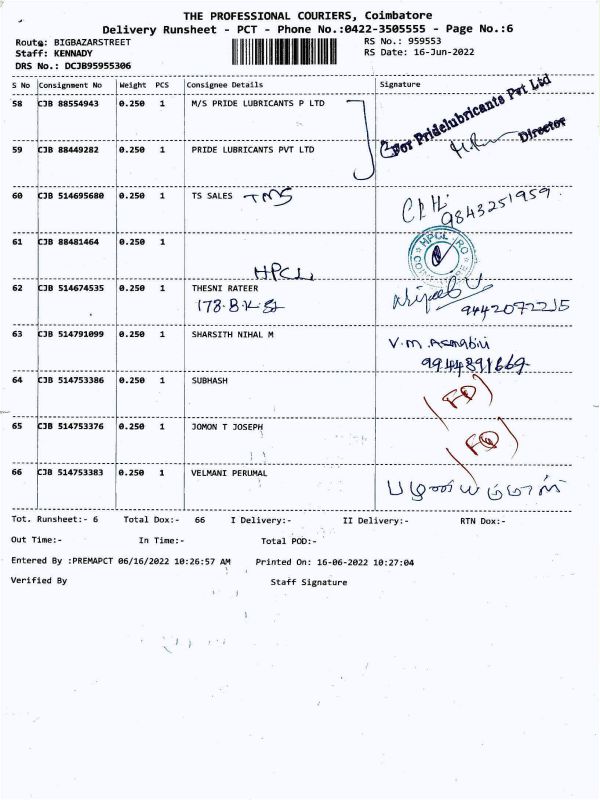 THE PROFESSIONAL COURIERS, Coimbatore
Delivery Runsheet - PCT - Phone No.:0422-3505555 - Page No.:6
Route: BIGBAZARSTREET
RS No.: 959553
Staff: KENNADY
RS Date: 16-Jun-2022
DRS No.: DCJB95955306
S No Consignment No Weight PCS Consignee Details Signature
58 CJB 88554943 0.250 1 M/S PRIDE LUBRICANTS P LTD
For Pridelubricants Pvt Ltd
Director
59 CJB 88449282 0.250 1 PRIDE LUBRICANTS PVT LTD
60 CJB 514695680 0.250 1 TS SALES TMS
9843251959
61 CJB 88481464 0.250 1
HPCL
HPCL RO
62 CJB 514674535 0.250 1 THESNI RATEER
178. B.K. St
9442072215
63 CJB 514791099 0.250 1 SHARSITH NIHAL M
V.M. Asmabiri
9944891669
64 CJB 514753386 0.250 1 SUBHASH
65 CJB 514753376 0.250 1 JOMON T JOSEPH
66 CJB 514753383 0.250 1 VELMANI PERUMAL
Tot. Runsheet:- 6 Total Dox:- 66 I Delivery:- II Delivery:- RTN Dox:-
Out Time:- In Time:- Total POD:-
Entered By :PREMAPCT 06/16/2022 10:26:57 AM Printed On: 16-06-2022 10:27:04
Verified By Staff Signature